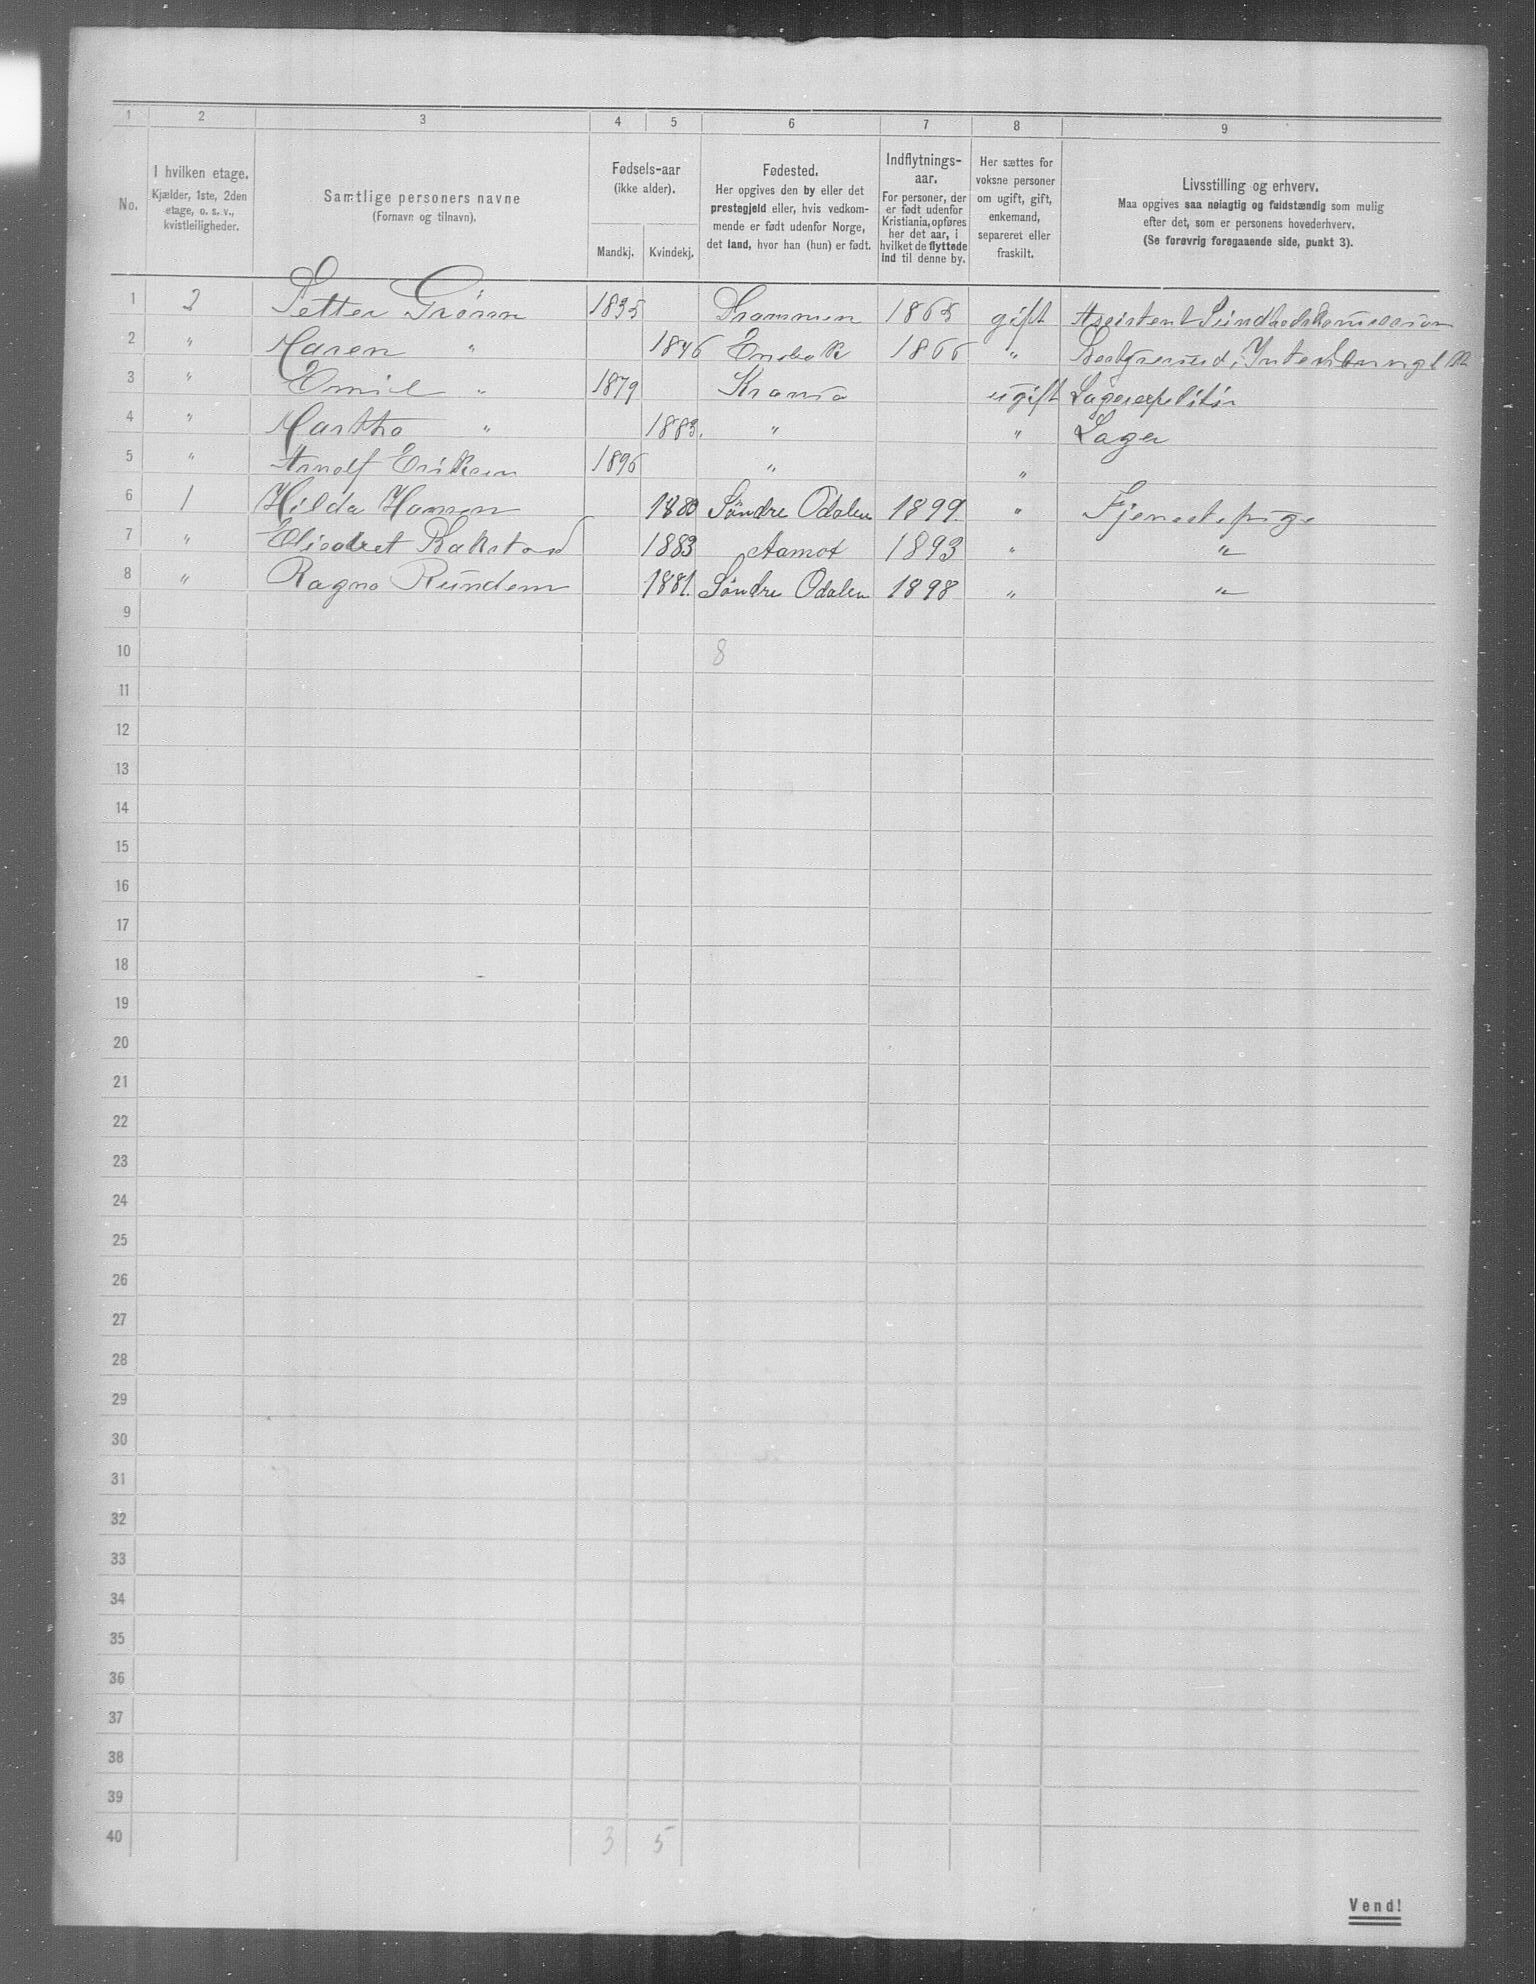 1 2 3 4 5 6 7 8 9
No.
I hvilken etage.
Kjælder, 1ste, 2den
etage, o. s. v.,
kvistleiligheder.
Samtlige personers navne
(Fornavn og tilnavn).
Fødsels-aar
(ikke alder).
Mandkj. Kvindekj.
Fødested.
Her opgives den by eller det
prestegjeld eller, hvis vedkom-
mende er født udenfor Norge,
det land, hvor han (hun) er født.
Indflytnings-
aar.
For personer, der
er født udenfor
Kristiania, opføres
her det aar, i
hvilket de flyttede
ind til denne by.
Her sættes for
voksne personer
om ugift, gift,
enkemand,
separeret eller
fraskilt.
Livsstilling og erhverv.
Maa opgives saa nøiagtig og fuldstændig som mulig
efter det, som er personens hovederhverv.
(Se forøvrig foregaaende side, punkt 3).
1 2 Petter Grönn 1835 Drammen 1865 gift Assistent Sundhedskomission
2 " Maren " 1846 Enebak 1866 "
3 " Emil " 1879 Krania ugift Lagerexpeditör
4 " Martha " 1883. " " Lager
5 " Arnolf Eriksen 1896 " "
6 1 Hilda Hansen 1880 Söndre Odalen 1899. " Tjenestepige
7 " Elisabet Bakstad 1883 Aamot 1893 " "
8 " Ragna Rundem 1881. Söndre Odalen 1898 " "
9
10 8
11
12
13
14
15
16
17
18
19
20
21
22
23
24
25
26
27
28
29
30
31
32
33
34
35
36
37
38
39
40 3 5
Vend!